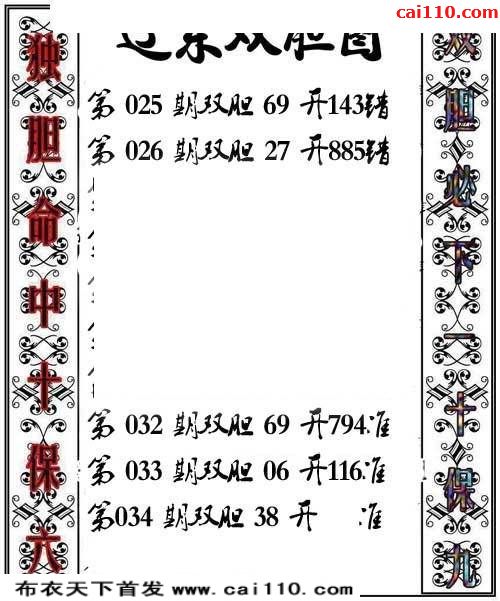 cai110.com
辽东双胆图
独胆命中十保六
第 025 期双胆 69 开143错
第 026 期双胆 27 开885错
第 032 期双胆 69 开794准
第 033 期双胆 06 开116准
第034 期双胆 38 开 准
双胆必下一十保九
布衣天下首发 www.cai110.com